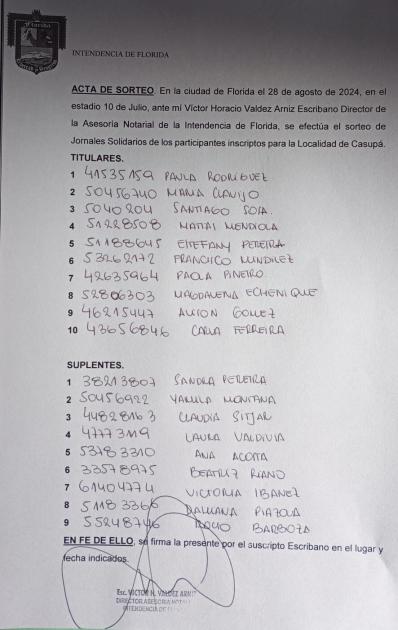 Florida
INTENDENCIA DE FLORIDA
ACTA DE SORTEO. En la ciudad de Florida el 28 de agosto de 2024, en el
estadio 10 de Julio, ante mí Víctor Horacio Valdez Arniz Escribano Director de
la Asesoría Notarial de la Intendencia de Florida, se efectúa el sorteo de
Jornales Solidarios de los participantes inscriptos para la Localidad de Casupá.
TITULARES.
1 41535159 PAULA RODRIGUEZ
2 50456740 MARIA CLAVIJO
3 5040204 SANTIAGO SOSA
4 51228508 MENDIOLA
5 51188645 ESTEFANY PEREIRA
6 53262172 FRANCISCO
7 42635964 PAOLA PIÑEIRO
8 52806303 MAGDALENA ECHENIQUE
9 46215447 GOMEZ
10 43656846 CARLA FERREIRA
SUPLENTES.
1 38213807 SANDRA PEREIRA
2 50456922 MONTANA
3 44828163 CLAUDIA SITJAR
4 47773119 LAURA VALDIVIA
5 53783310 ANA ACOSTA
6 33578975 BEATRIZ RIANO
7 61404774 VICTORIA IBANEZ
8 51183366 DAIANA PIAZOLA
9 55248746 BARBOZA
EN FE DE ELLO, se firma la presente por el suscripto Escribano en el lugar y
fecha indicados.
Esc. VICTOR H. VALDEZ ARNIZ
DIRECTOR ASESORIA NOTARIAL
INTENDENCIA DE